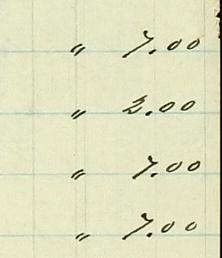 " 7.00
" 2.00
" 7.00
" 7.00